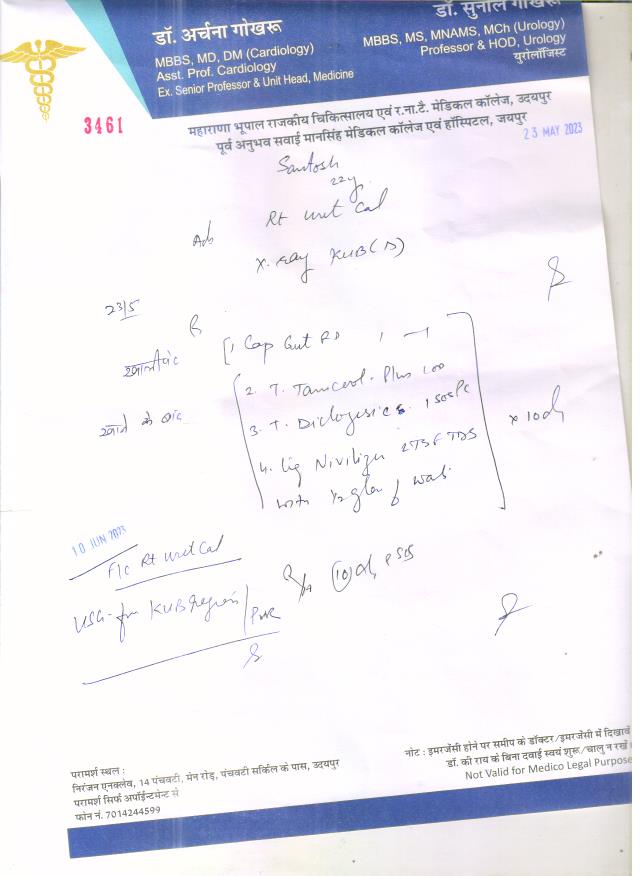 डॉ. अर्चना गोखरू
MBBS, MD, DM (Cardiology)
Asst. Prof. Cardiology
Ex. Senior Professor & Unit Head, Medicine
डॉ. सुनील गोखरू
MBBS, MS, MNAMS, MCh (Urology)
Professor & HOD, Urology
युरोलॉजिस्ट
महाराणा भूपाल राजकीय चिकित्सालय एवं र.ना.टै. मेडिकल कॉलेज, उदयपुर
पूर्व अनुभव सवाई मानसिंह मेडिकल कॉलेज एवं हॉस्पिटल, जयपुर
3461
23 MAY 2023
Santosh
22y
Rt Uret Cal
Adv
X-ray KUB (S)
23/5
R
खालीपेट
1 Cap Gut RD
खाने के बाद
2. T. Tamceol-Plus 100
3. T. Diclogesic 1 SOS PC
4. Liq 2TSF TDS
with 1/2 glass of water
x 10d
10 JUN 2023
F/c Rt Uret Cal
USG-for KUB Region / PVR
10 d, SOS
परामर्श स्थल :
निरंजन एनक्लेव, 14 पंचवटी, मेन रोड़, पंचवटी सर्किल के पास, उदयपुर
परामर्श सिर्फ अपॉईन्टमेन्ट से
फोन नं. 7014244599
नोट : इमरजेंसी होने पर समीप के डॉक्टर/इमरजेंसी में दिखावें
डॉ. की राय के बिना दवाई स्वयं शुरू/चालु न रखें
Not Valid for Medico Legal Purpose